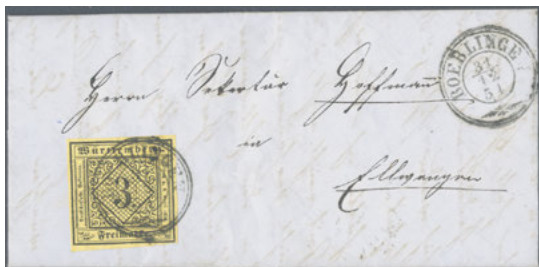 NOERLINGE
31
12
51
Herrn Sekertär Hoffmann
in
Ellwangen
Württemberg
3
Freimarke